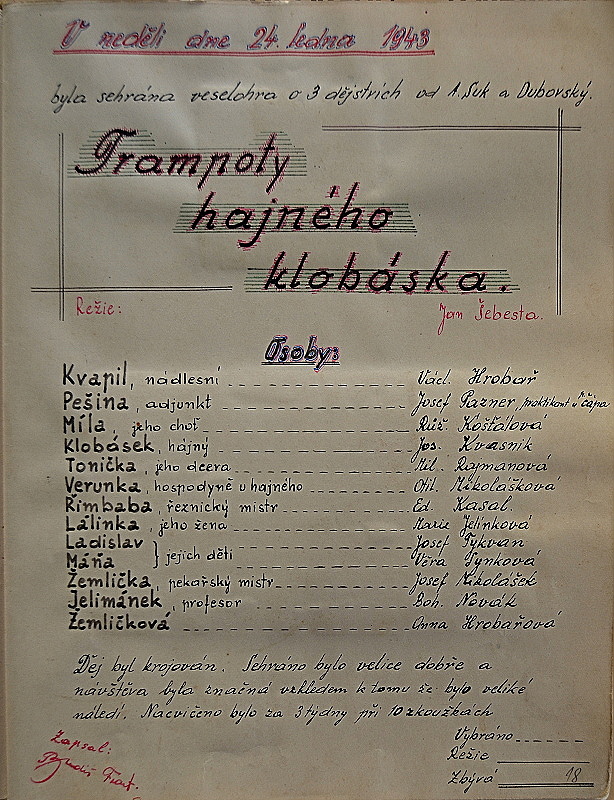 V neděli dne 24. ledna 1943
byla sehrána veselohra o 3 dějstvích od A. Suk a Dubovský.
Trampoty
hajného
klobáska.
Režie: Jan Šebesta.
Osoby:
Kvapil, nadlesní Václ. Hrobař
Pešina, adjunkt Josef Pazner, praktikant
Míla, jeho choť Růž. Košťálová
Klobásek, hajný Jos. Kvasnik
Tonička, jeho dcera Mil. Rajmanová
Verunka, hospodyně u hajného Otil. Mikolášková
Řimbaba, řeznický mistr Ed. Kasal.
Lálinka, jeho žena Marie Jelínková
Ladislav Josef Tykvan
Máňa } jejich děti Věra Synková
Žemlička, pekařský mistr Josef Mikolášek
Jelimánek, profesor Boh. Novák
Žemličková Anna Hrobařová
Děj byl krojován. Sehráno bylo velice dobře a
návštěva byla značná vzhledem k tomu že bylo veliké
náledí. Nacvičeno bylo za 3 týdny při 10 zkouškách
Zapsal:
Vybráno
Režie
Zbývá 18